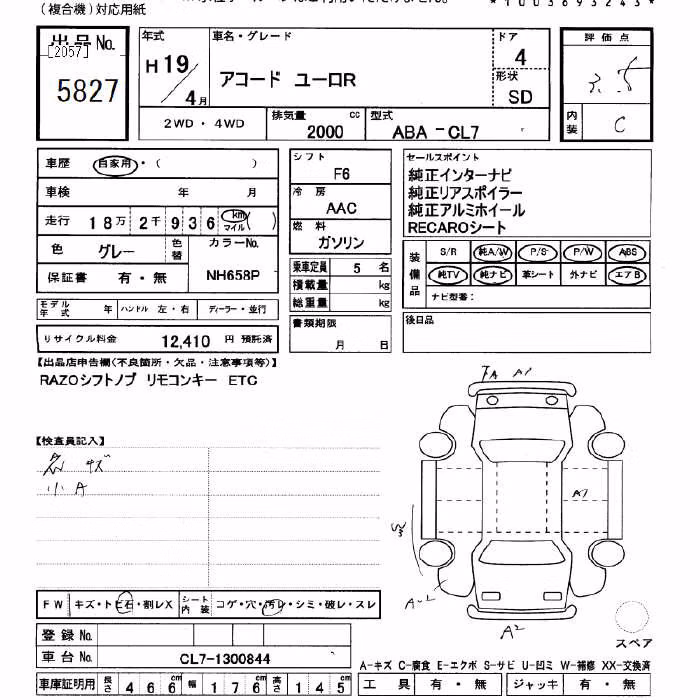 (複合機)対応用紙
*1003693243*
出品No.
[2057]
5827
年式
H19/4月
車名・グレード
アコード ユーロR
ドア
4
形状
SD
評価点
3.5
内装
C
2WD・4WD
排気量
2000 cc
型式
ABA-CL7
車歴 自家用・( )
車検 年 月
走行 18万2千936 km マイル( )
色 グレー 色替
カラーNo.
NH658P
保証書 有・無
モデル年式 年 ハンドル 左・右 ディーラー・並行
リサイクル料金 12,410 円 預託済
シフト
F6
冷房
AAC
燃料
ガソリン
乗車定員 5 名
積載量 kg
総重量 kg
書類期限
月 日
セールスポイント
純正インターナビ
純正リアスポイラー
純正アルミホイール
RECAROシート
装備品
S/R 純A/W P/S P/W ABS
純TV 純ナビ 革シート 外ナビ エアB
ナビ型番:
後日品
【出品店申告欄(不良箇所・欠品・注意事項等)】
RAZOシフトノブ リモコンキー ETC
【検査員記入】
小A
A1
A1
W3
A-2
A2
スペア
FW キズ・トビ石・割レX シート内装 コゲ・穴・汚レ・シミ・破レ・スレ
登録No.
車台No. CL7-1300844
車庫証明用 長さ 466 幅 176 高さ 145
A-キズ C-腐食 E-エクボ S-サビ U-凹ミ W-補修 XX-交換済
工具 有・無 ジャッキ 有・無